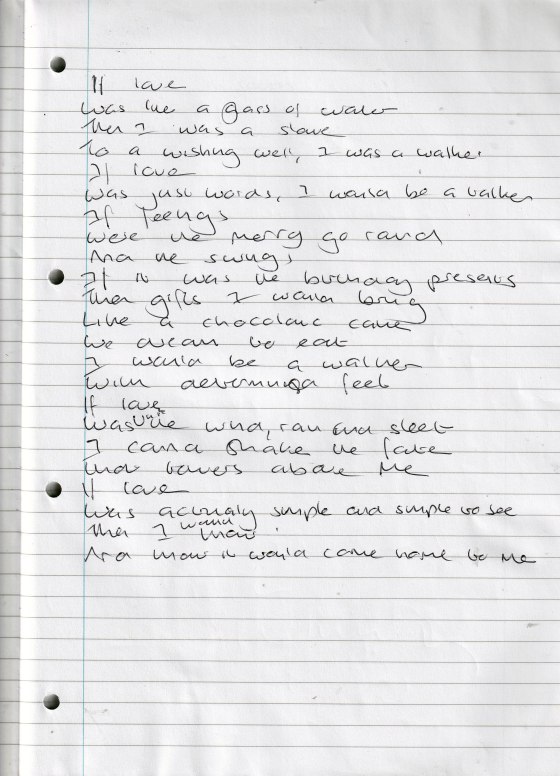 If love
was like a glass of water
then I was a slave
to a wishing well, I was a walker
If love
was just words, I would be a talker
If feelings
were the merry go round
And the swings
If it was the birthday presents
Then gifts I would bring
Like a chocolate cake
we dream to eat
I would be a walker
with determined feet
If love
was like wind, rain and sleet
I could shake the fate
that towers above me
If love
was actually simple and simple to see
then I would know
And know it would come home to me